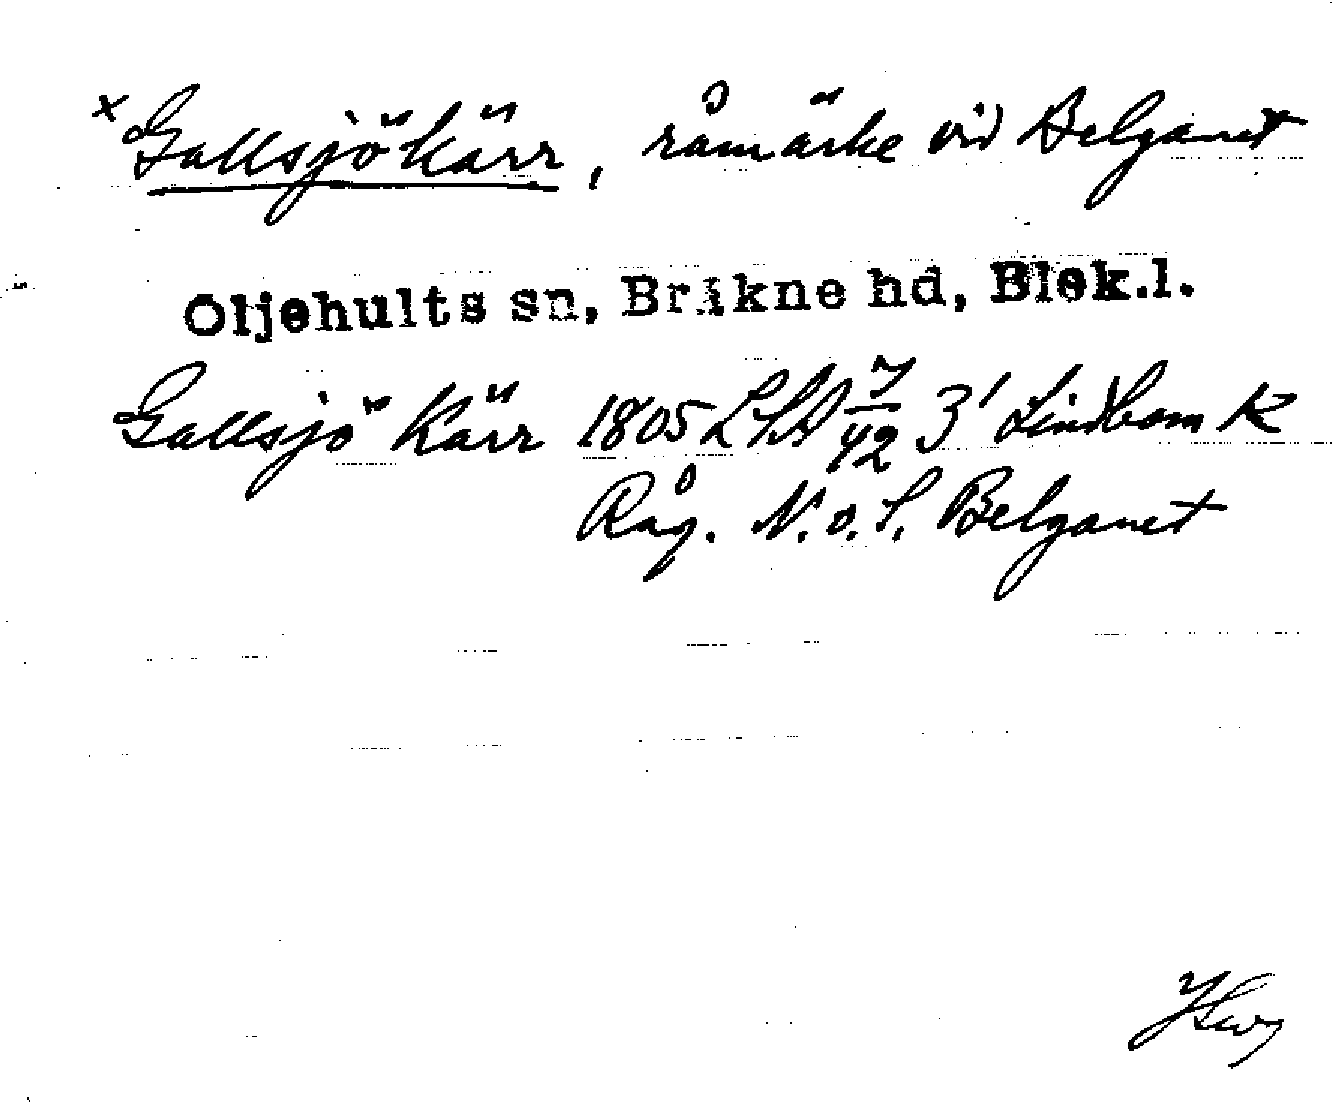 × Gallsjökärr, råmärke vid Belganet
Oljehults sn, Bräkne hd, Blek.l.
Gallsjö Kärr 1805 LSA 7/42 3' Lindbom K
Råg. N. o. S. Belganet